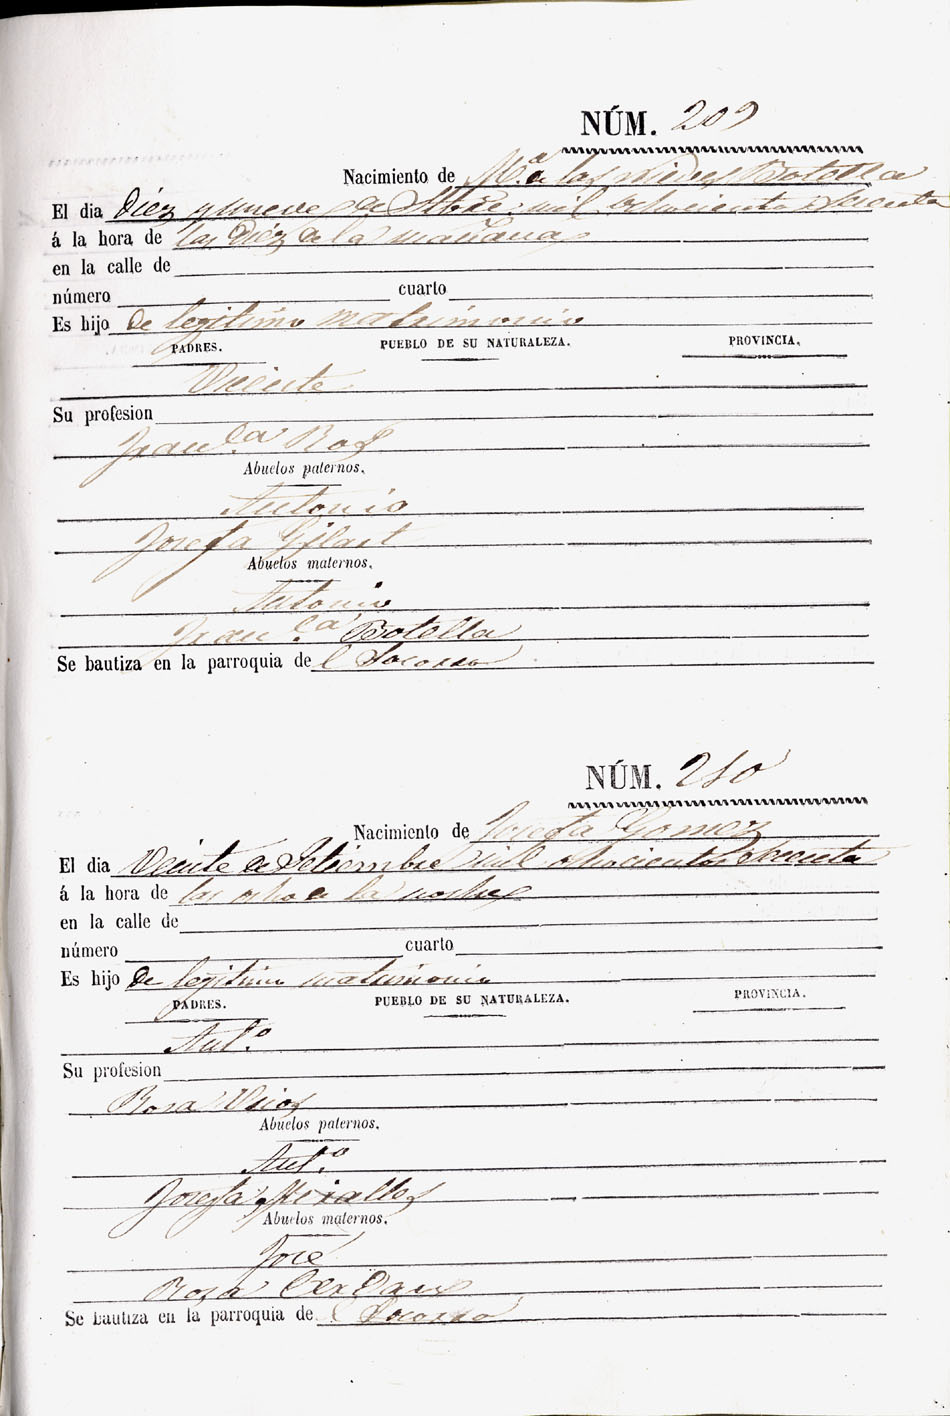 NÚM. 209
Nacimiento de M.ª de las Nieves Botella
El dia Diéz y nueve de Stbre. mil ochocientos sesenta
á la hora de las Diéz de la mañana
en la calle de
número cuarto
Es hijo de legitimo matrimonio
PADRES. PUEBLO DE SU NATURALEZA. PROVINCIA.
Vicente
Su profesion
Fran.ca Ros
Abuelos paternos.
Antonio
Josefa Gilart
Abuelos maternos.
Antonio
Fran.ca Botella
Se bautiza en la parroquia de l Socorro
NÚM. 210
Nacimiento de Josefa Gomez
El dia Veinte de Setiembre mil ochocientos sesenta
á la hora de las ocho de la noche
en la calle de
número cuarto
Es hijo de legitimo matrimonio
PADRES. PUEBLO DE SU NATURALEZA. PROVINCIA.
Ant.º
Su profesion
Rosa
Abuelos paternos.
Ant.º
Josefa Miralles
Abuelos maternos.
José
Rosa
Se bautiza en la parroquia de l Socorro